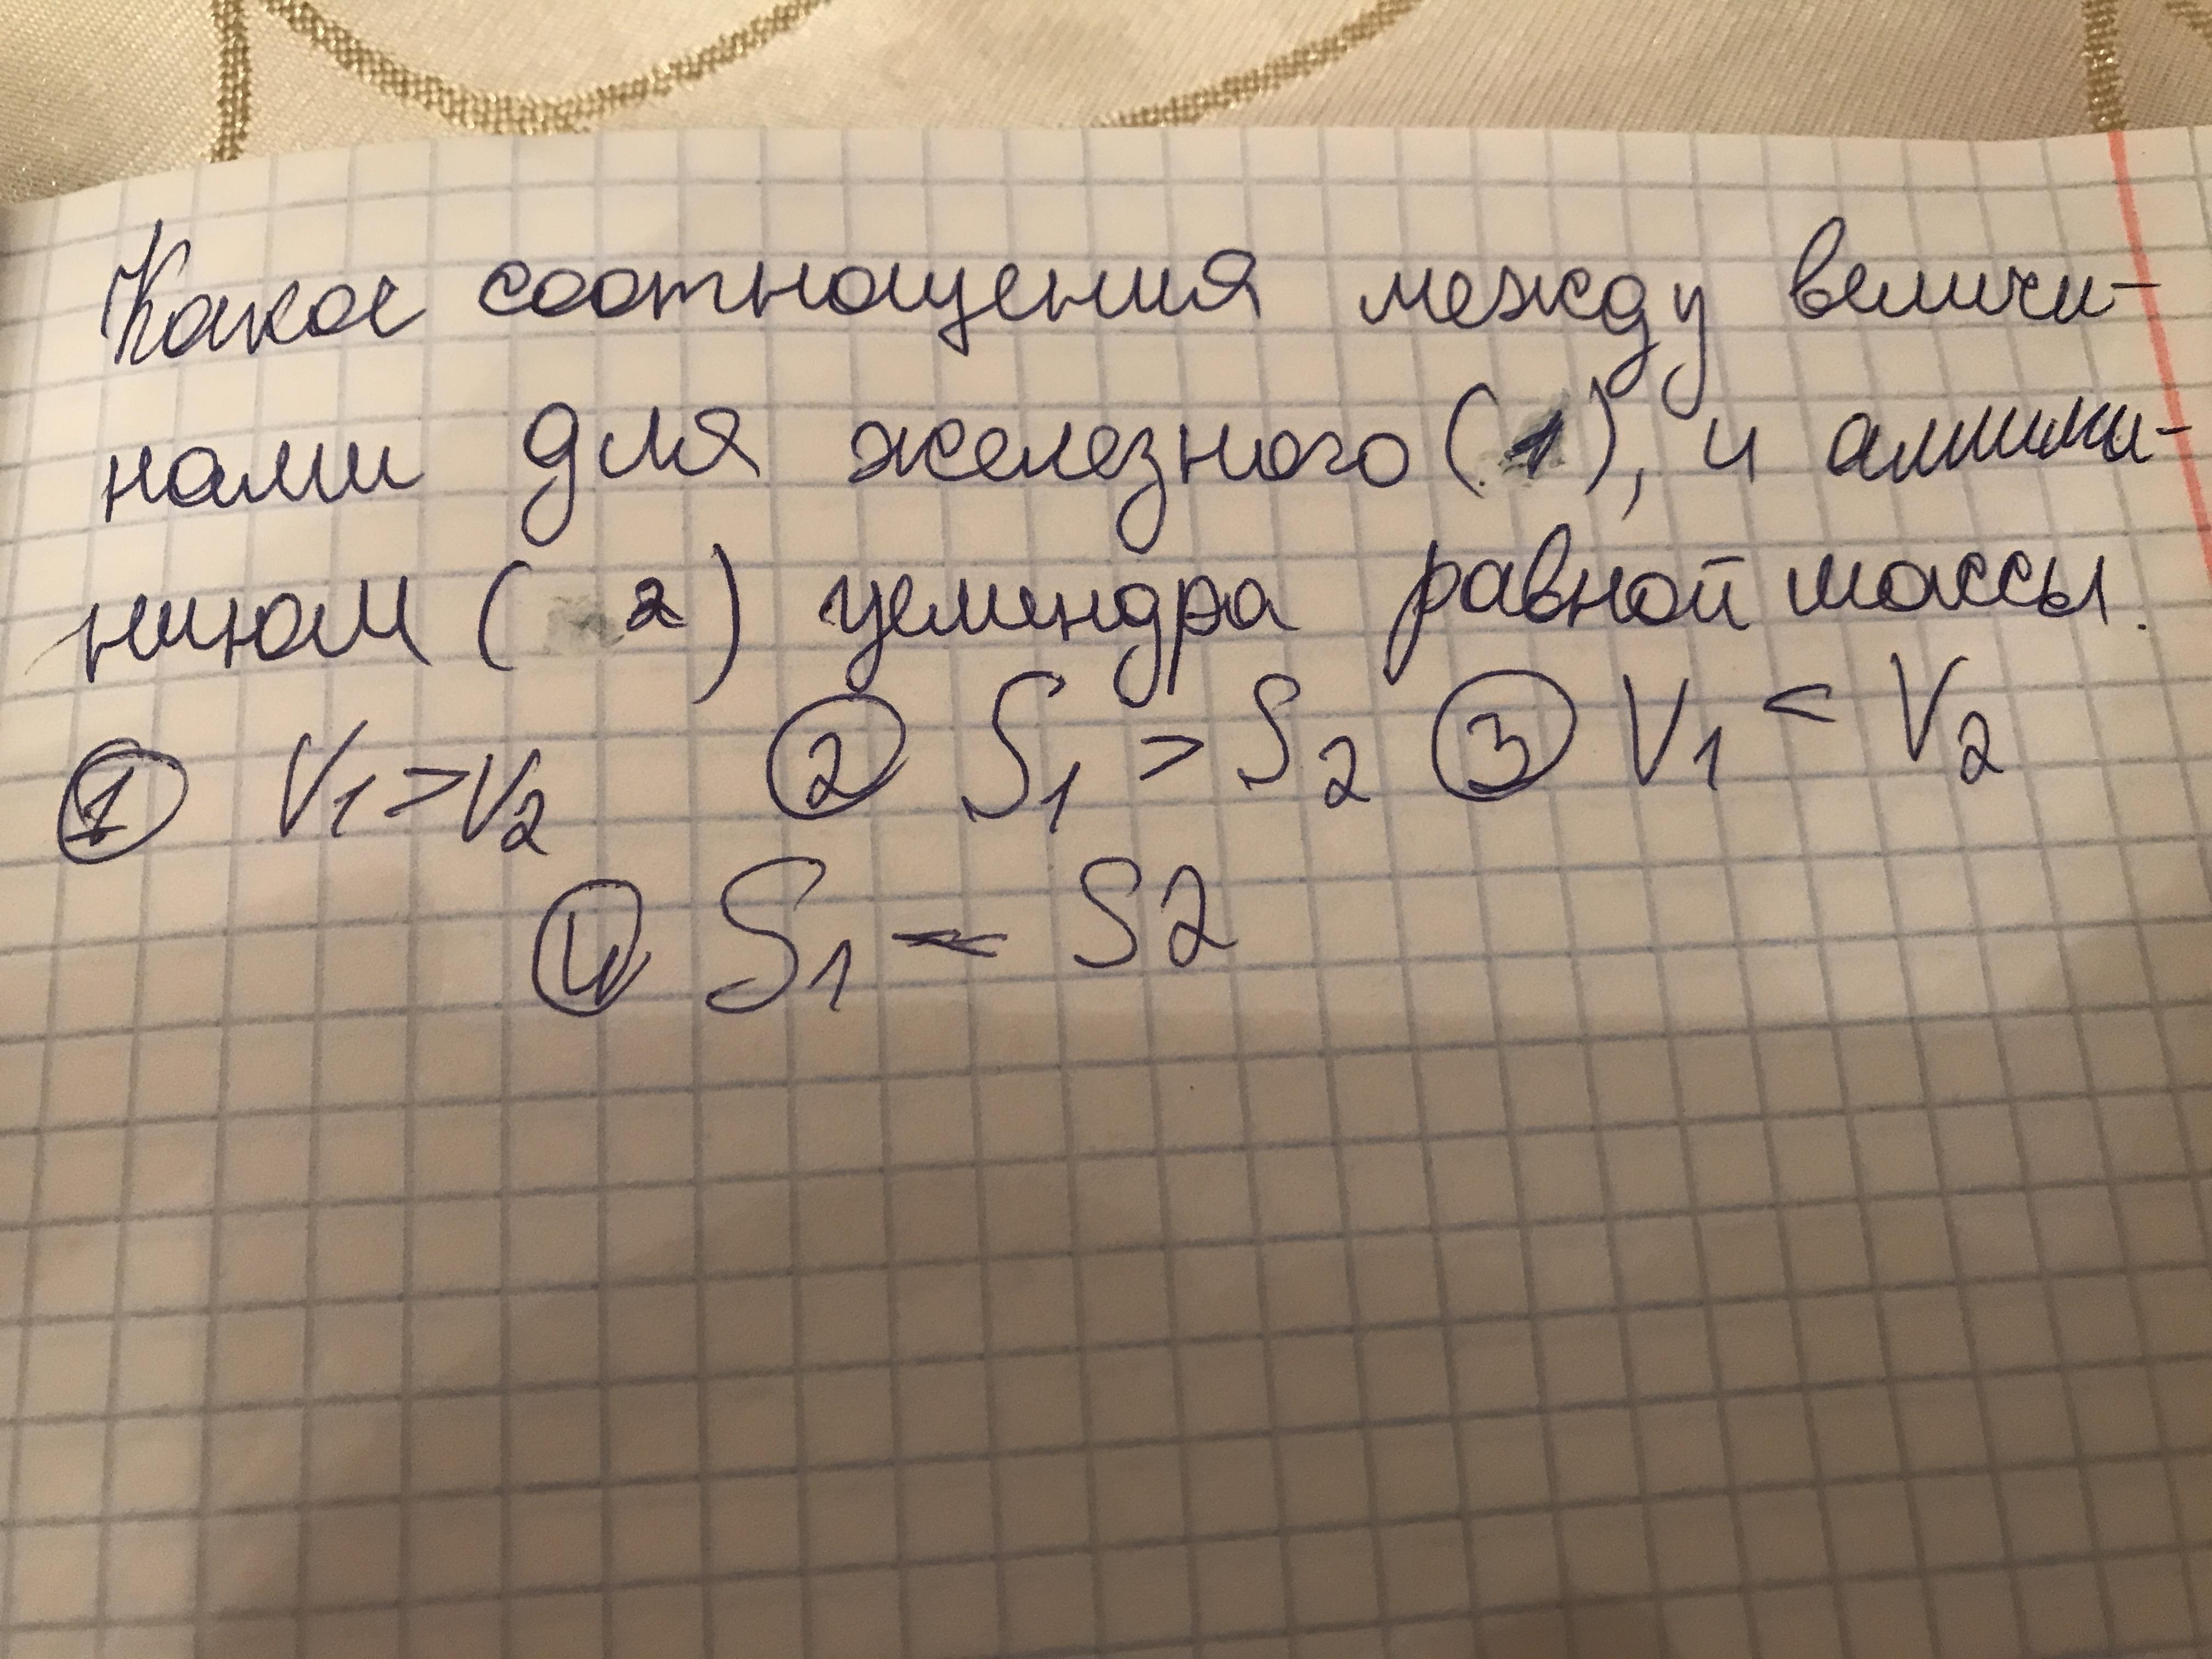 Какое соотнощения между величи-
нами для железного (1), и алюми-
нием (2) цилиндра равной массы.
① V1 > V2 ② S1 > S2 ③ V1 < V2
④ S1 < S2